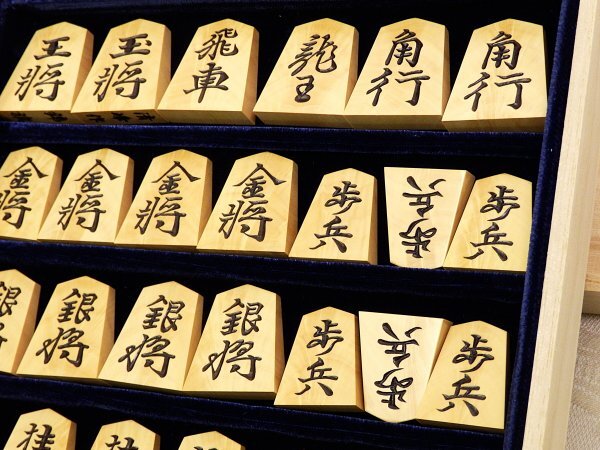 王将 玉将 飛車 龍王 角行 角行
金将 金将 金将 金将 歩兵 歩兵 歩兵
銀将 銀将 銀将 銀将 歩兵 歩兵 歩兵
桂 桂